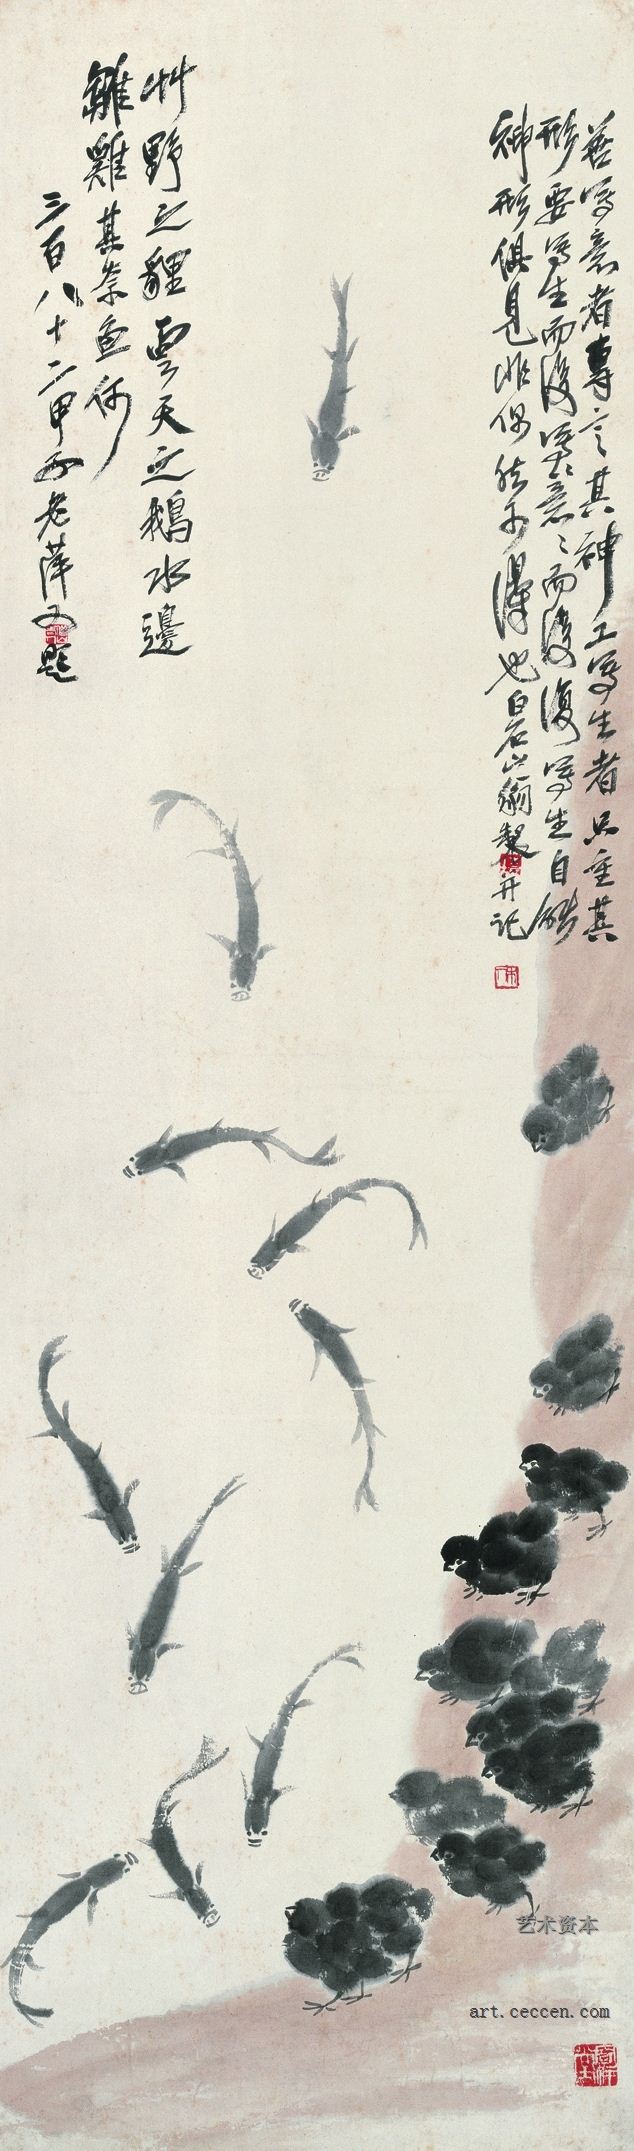 善写意者專言其神工写生者只重其
形要写生而後写意写意而後復写生自能
神形俱見非偶然可得也白石山翁製并記
艸野之貍雲天之鵝水邊
雛雞其奈魚何
三百八十二甲子老萍又題
艺术资本
art.ceccen.com